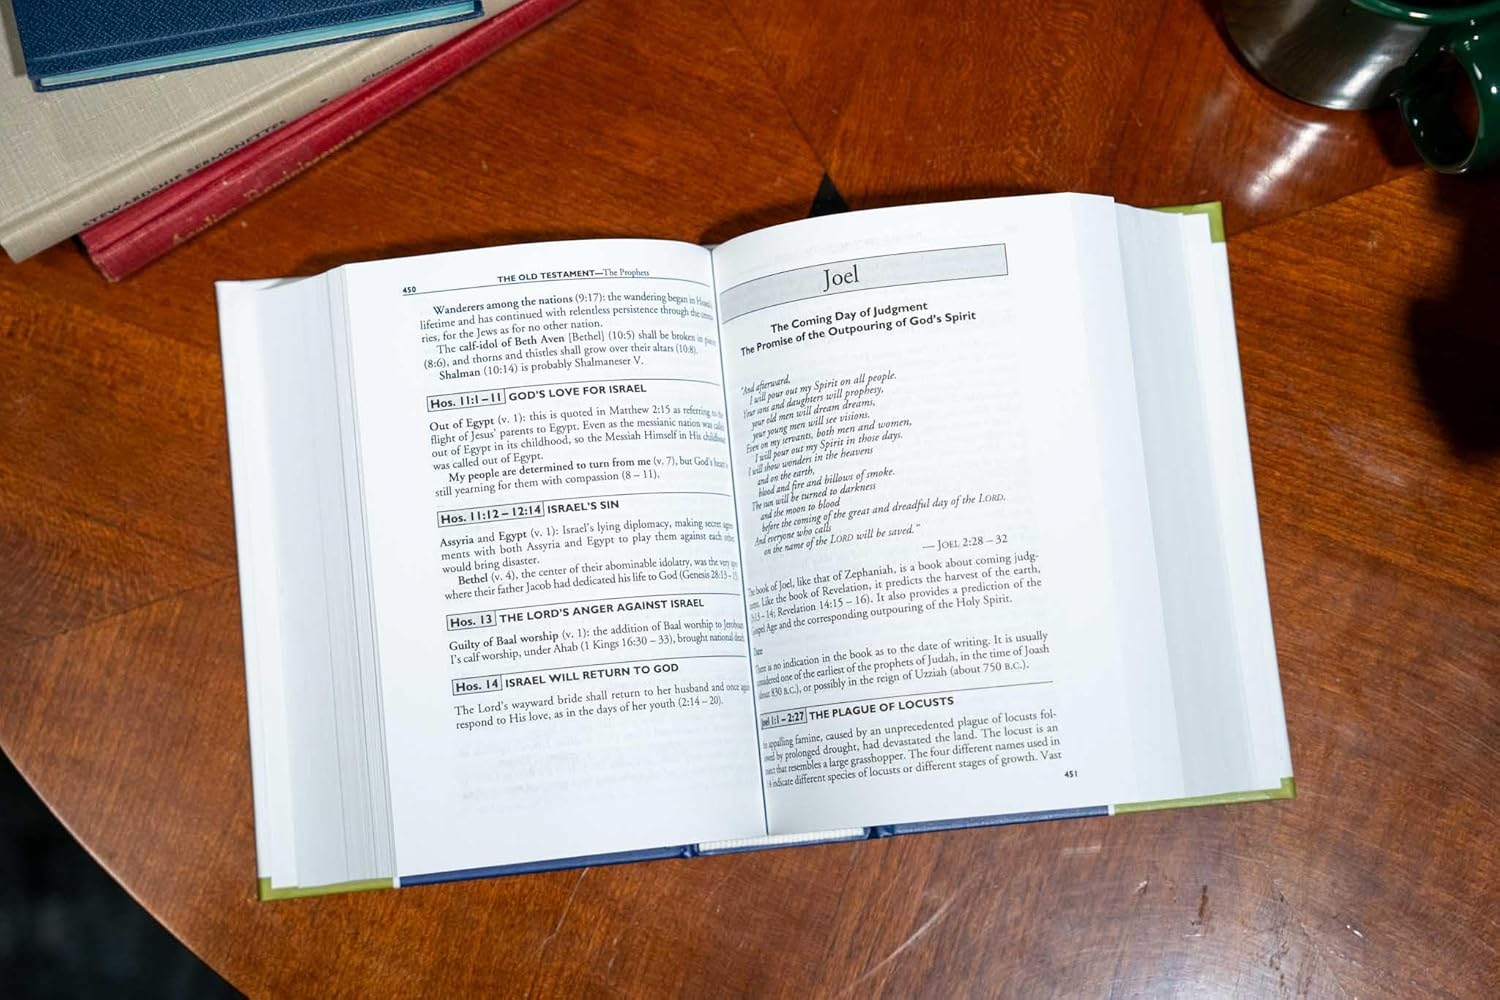 STEWARDSHIP SERMONETTES
450
THE OLD TESTAMENT—The Prophets
Wanderers among the nations (9:17): the wandering began in
lifetime and has continued with relentless persistence through the
ries, for the Jews as for no other nation.
The calf-idol of Beth Aven [Bethel] (10:5) shall be broken in
(8:6), and thorns and thistles shall grow over their altars (10:8).
Shalman (10:14) is probably Shalmaneser V.
Hos. 11:1–11 GOD'S LOVE FOR ISRAEL
Out of Egypt (v. 1): this is quoted in Matthew 2:15 as referring to the
flight of Jesus' parents to Egypt. Even as the messianic nation was
out of Egypt in its childhood, so the Messiah Himself in His
was called out of Egypt.
My people are determined to turn from me (v. 7), but God's heart
still yearning for them with compassion (8–11).
Hos. 11:12–12:14 ISRAEL'S SIN
Assyria and Egypt (v. 1): Israel's lying diplomacy, making secret agree-
ments with both Assyria and Egypt to play them against each other
would bring disaster.
Bethel (v. 4), the center of their abominable idolatry, was the very
where their father Jacob had dedicated his life to God (Genesis 28:13–
Hos. 13 THE LORD'S ANGER AGAINST ISRAEL
Guilty of Baal worship (v. 1): the addition of Baal worship to
I's calf worship, under Ahab (1 Kings 16:30–33), brought national
Hos. 14 ISRAEL WILL RETURN TO GOD
The Lord's wayward bride shall return to her husband and once
respond to His love, as in the days of her youth (2:14–20).
Joel
The Coming Day of Judgment
The Promise of the Outpouring of God's Spirit
"And afterward,
I will pour out my Spirit on all people.
Your sons and daughters will prophesy,
your old men will dream dreams,
your young men will see visions.
Even on my servants, both men and women,
I will pour out my Spirit in those days.
I will show wonders in the heavens
and on the earth,
blood and fire and billows of smoke.
The sun will be turned to darkness
and the moon to blood
before the coming of the great and dreadful day of the LORD.
And everyone who calls
on the name of the LORD will be saved."
— JOEL 2:28–32
The book of Joel, like that of Zephaniah, is a book about coming judg-
Like the book of Revelation, it predicts the harvest of the earth,
13–14; Revelation 14:15–16). It also provides a prediction of the
Gospel Age and the corresponding outpouring of the Holy Spirit.
Date
There is no indication in the book as to the date of writing. It is usually
considered one of the earliest of the prophets of Judah, in the time of Joash
(about 830 B.C.), or possibly in the reign of Uzziah (about 750 B.C.).
Joel 1:1–2:27 THE PLAGUE OF LOCUSTS
appalling famine, caused by an unprecedented plague of locusts fol-
by prolonged drought, had devastated the land. The locust is an
that resembles a large grasshopper. The four different names used in
indicate different species of locusts or different stages of growth. Vast
451